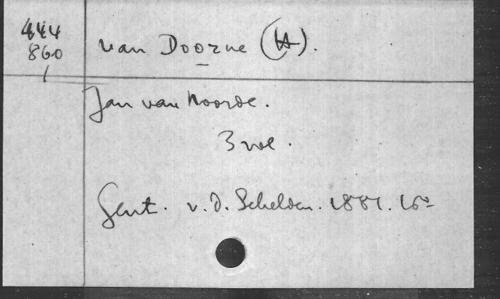 444
860
/
van Doorne (H).
Jan van Noorde.
3 vol.
Gent. v. d. Schelden. 1881. 16º